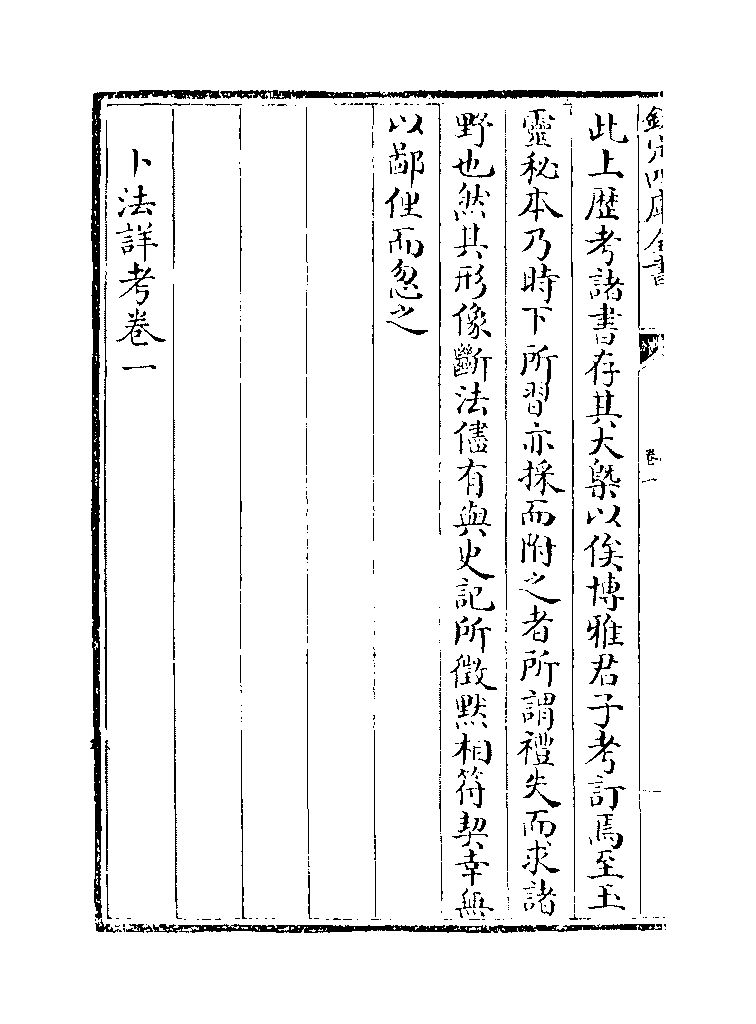 欽定四庫全書
卷一
此上歴考諸書存其大槩以俟博雅君子考訂焉至玉
靈秘本乃時下所習亦採而附之者所謂禮失而求諸
野也然其形像斷法儘有與史記所徵黙相符契幸無
以鄙俚而忽之
卜法詳考卷一